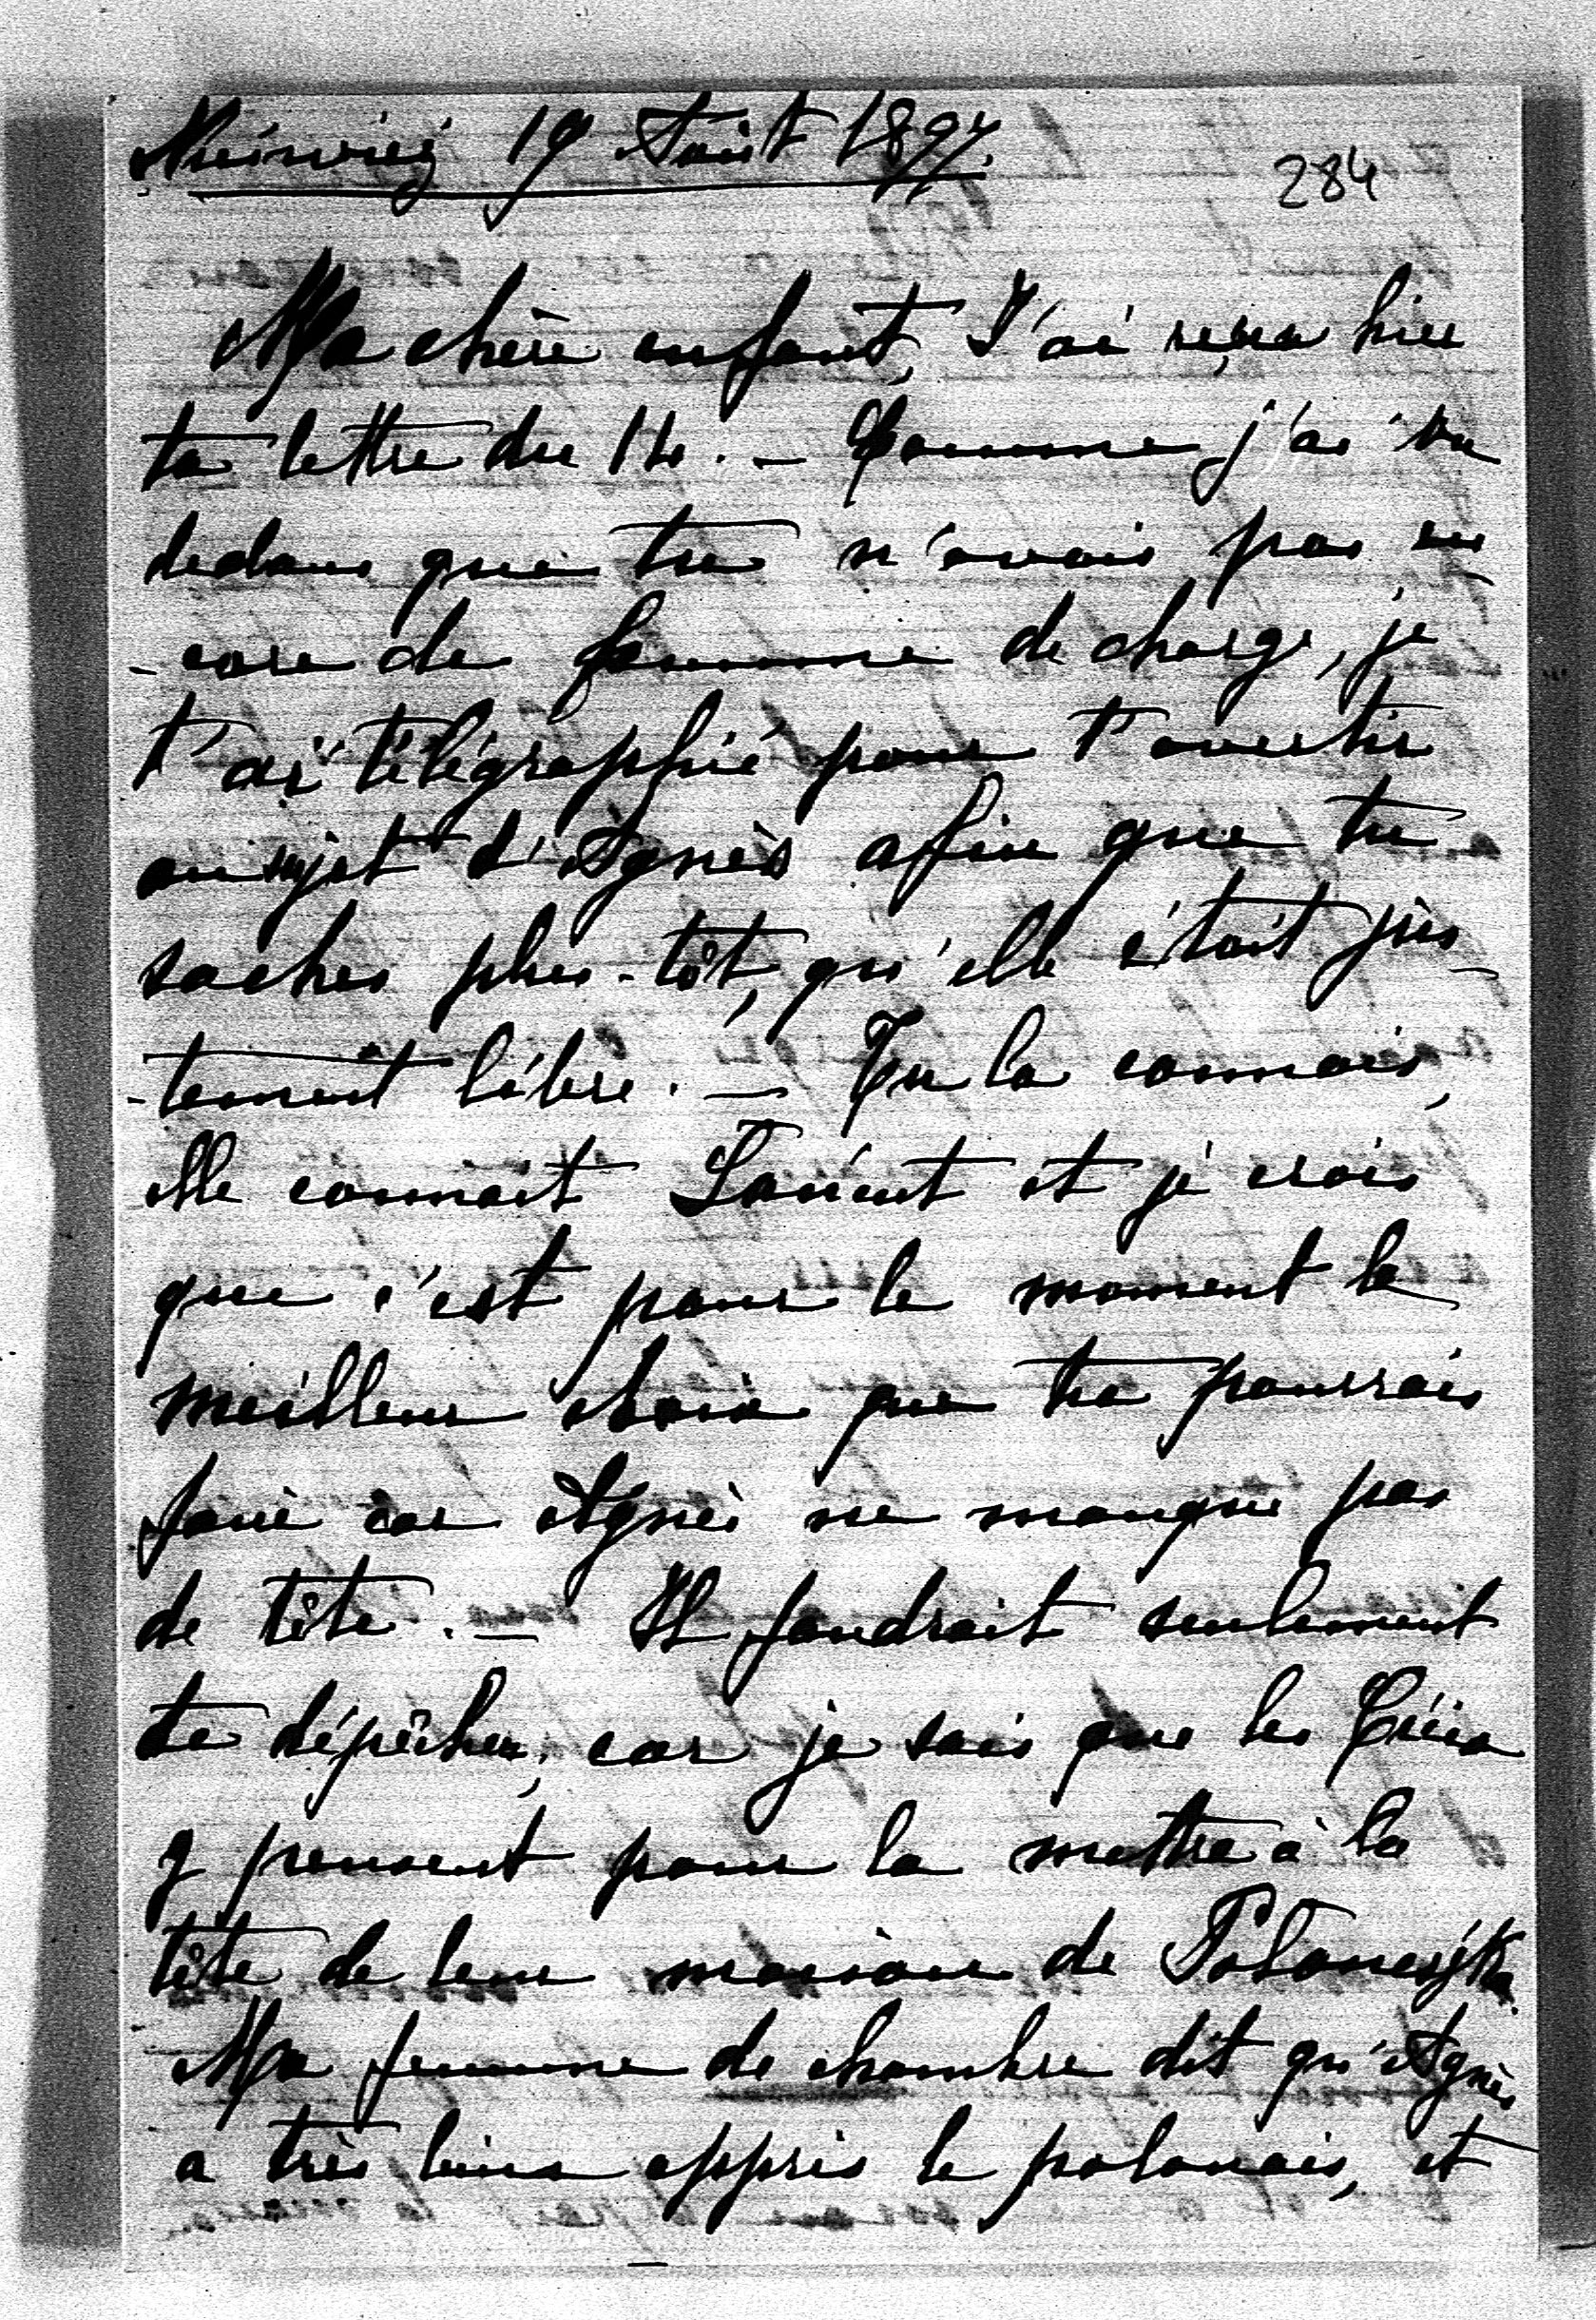 Nieśwież 19 Août 1897.
284
Ma chère enfant, J'ai reçu hier
ta lettre du 14. — Comme j'ai vu
dedans que tu n'avais pas en
- core de femme de charge, je
t'ai télégraphié pour t'avertir
au sujet d'Agnès afin que tu
saches plus-tôt, qu'elle était jus
-tement libre. — Tu la connais,
elle connait Łańcut et je crois
que c'est pour le moment le
meilleur choix que tu pourrais
faire car Agnès ne manque pas
de tête. — Il faudrait seulement
te dépêcher, car je sais que les
y pensent pour la mettre à la
tête de leur maison de
Ma femme de chambre dit qu'Agnès
a très bien appris le polonais, et